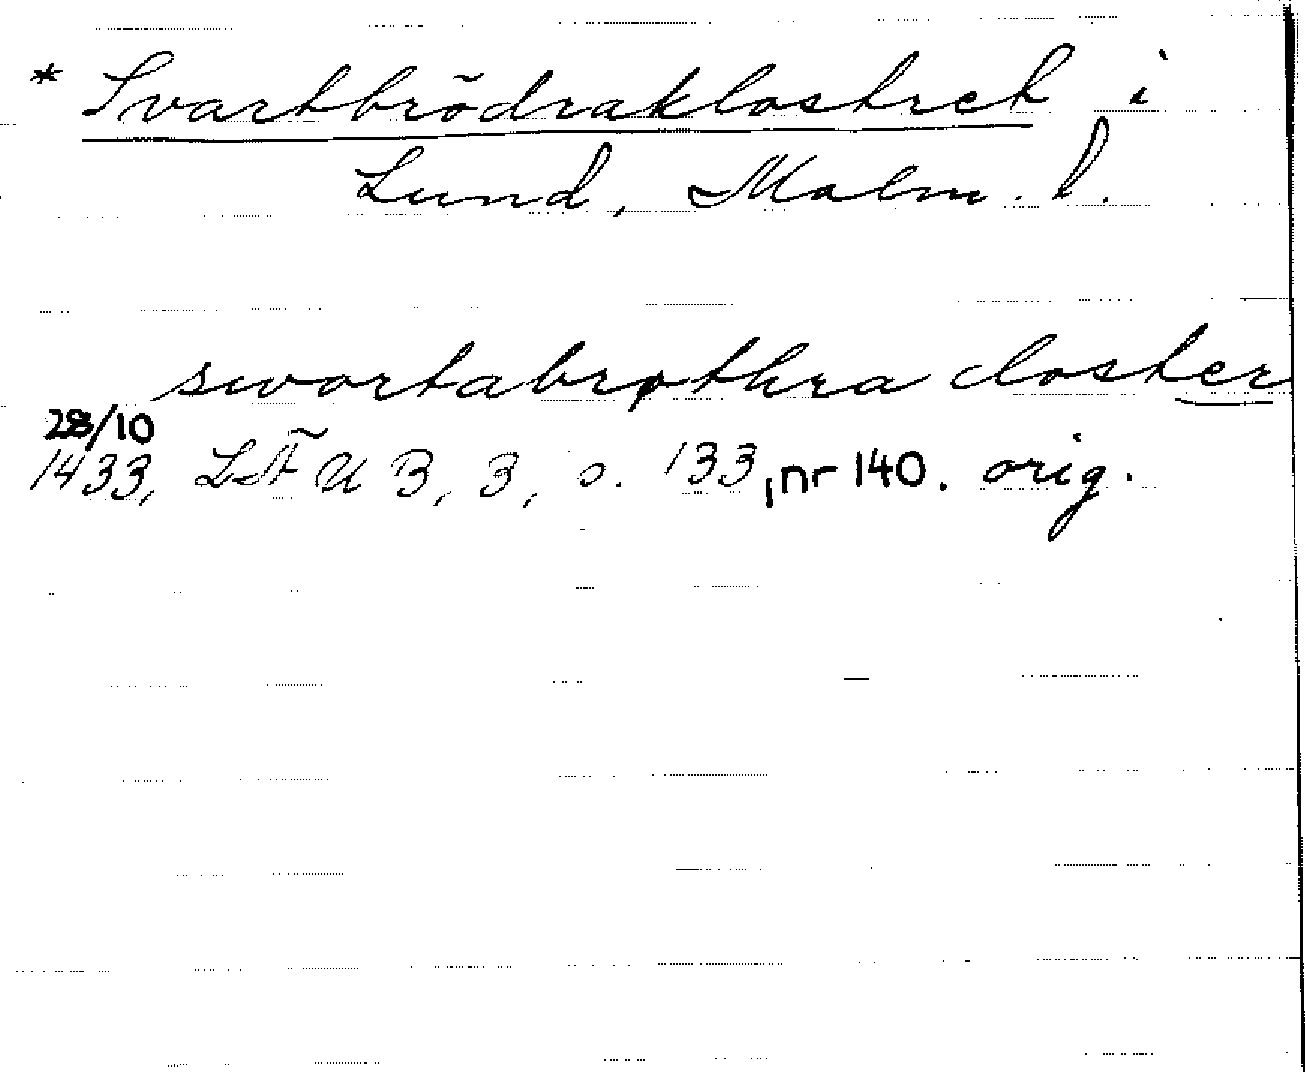 * Svartbrödraklostret i
Lund, Malm. l.
swortabrøthra closter
28/10
1433, LÄUB, 3, s. 133, nr 140. orig.